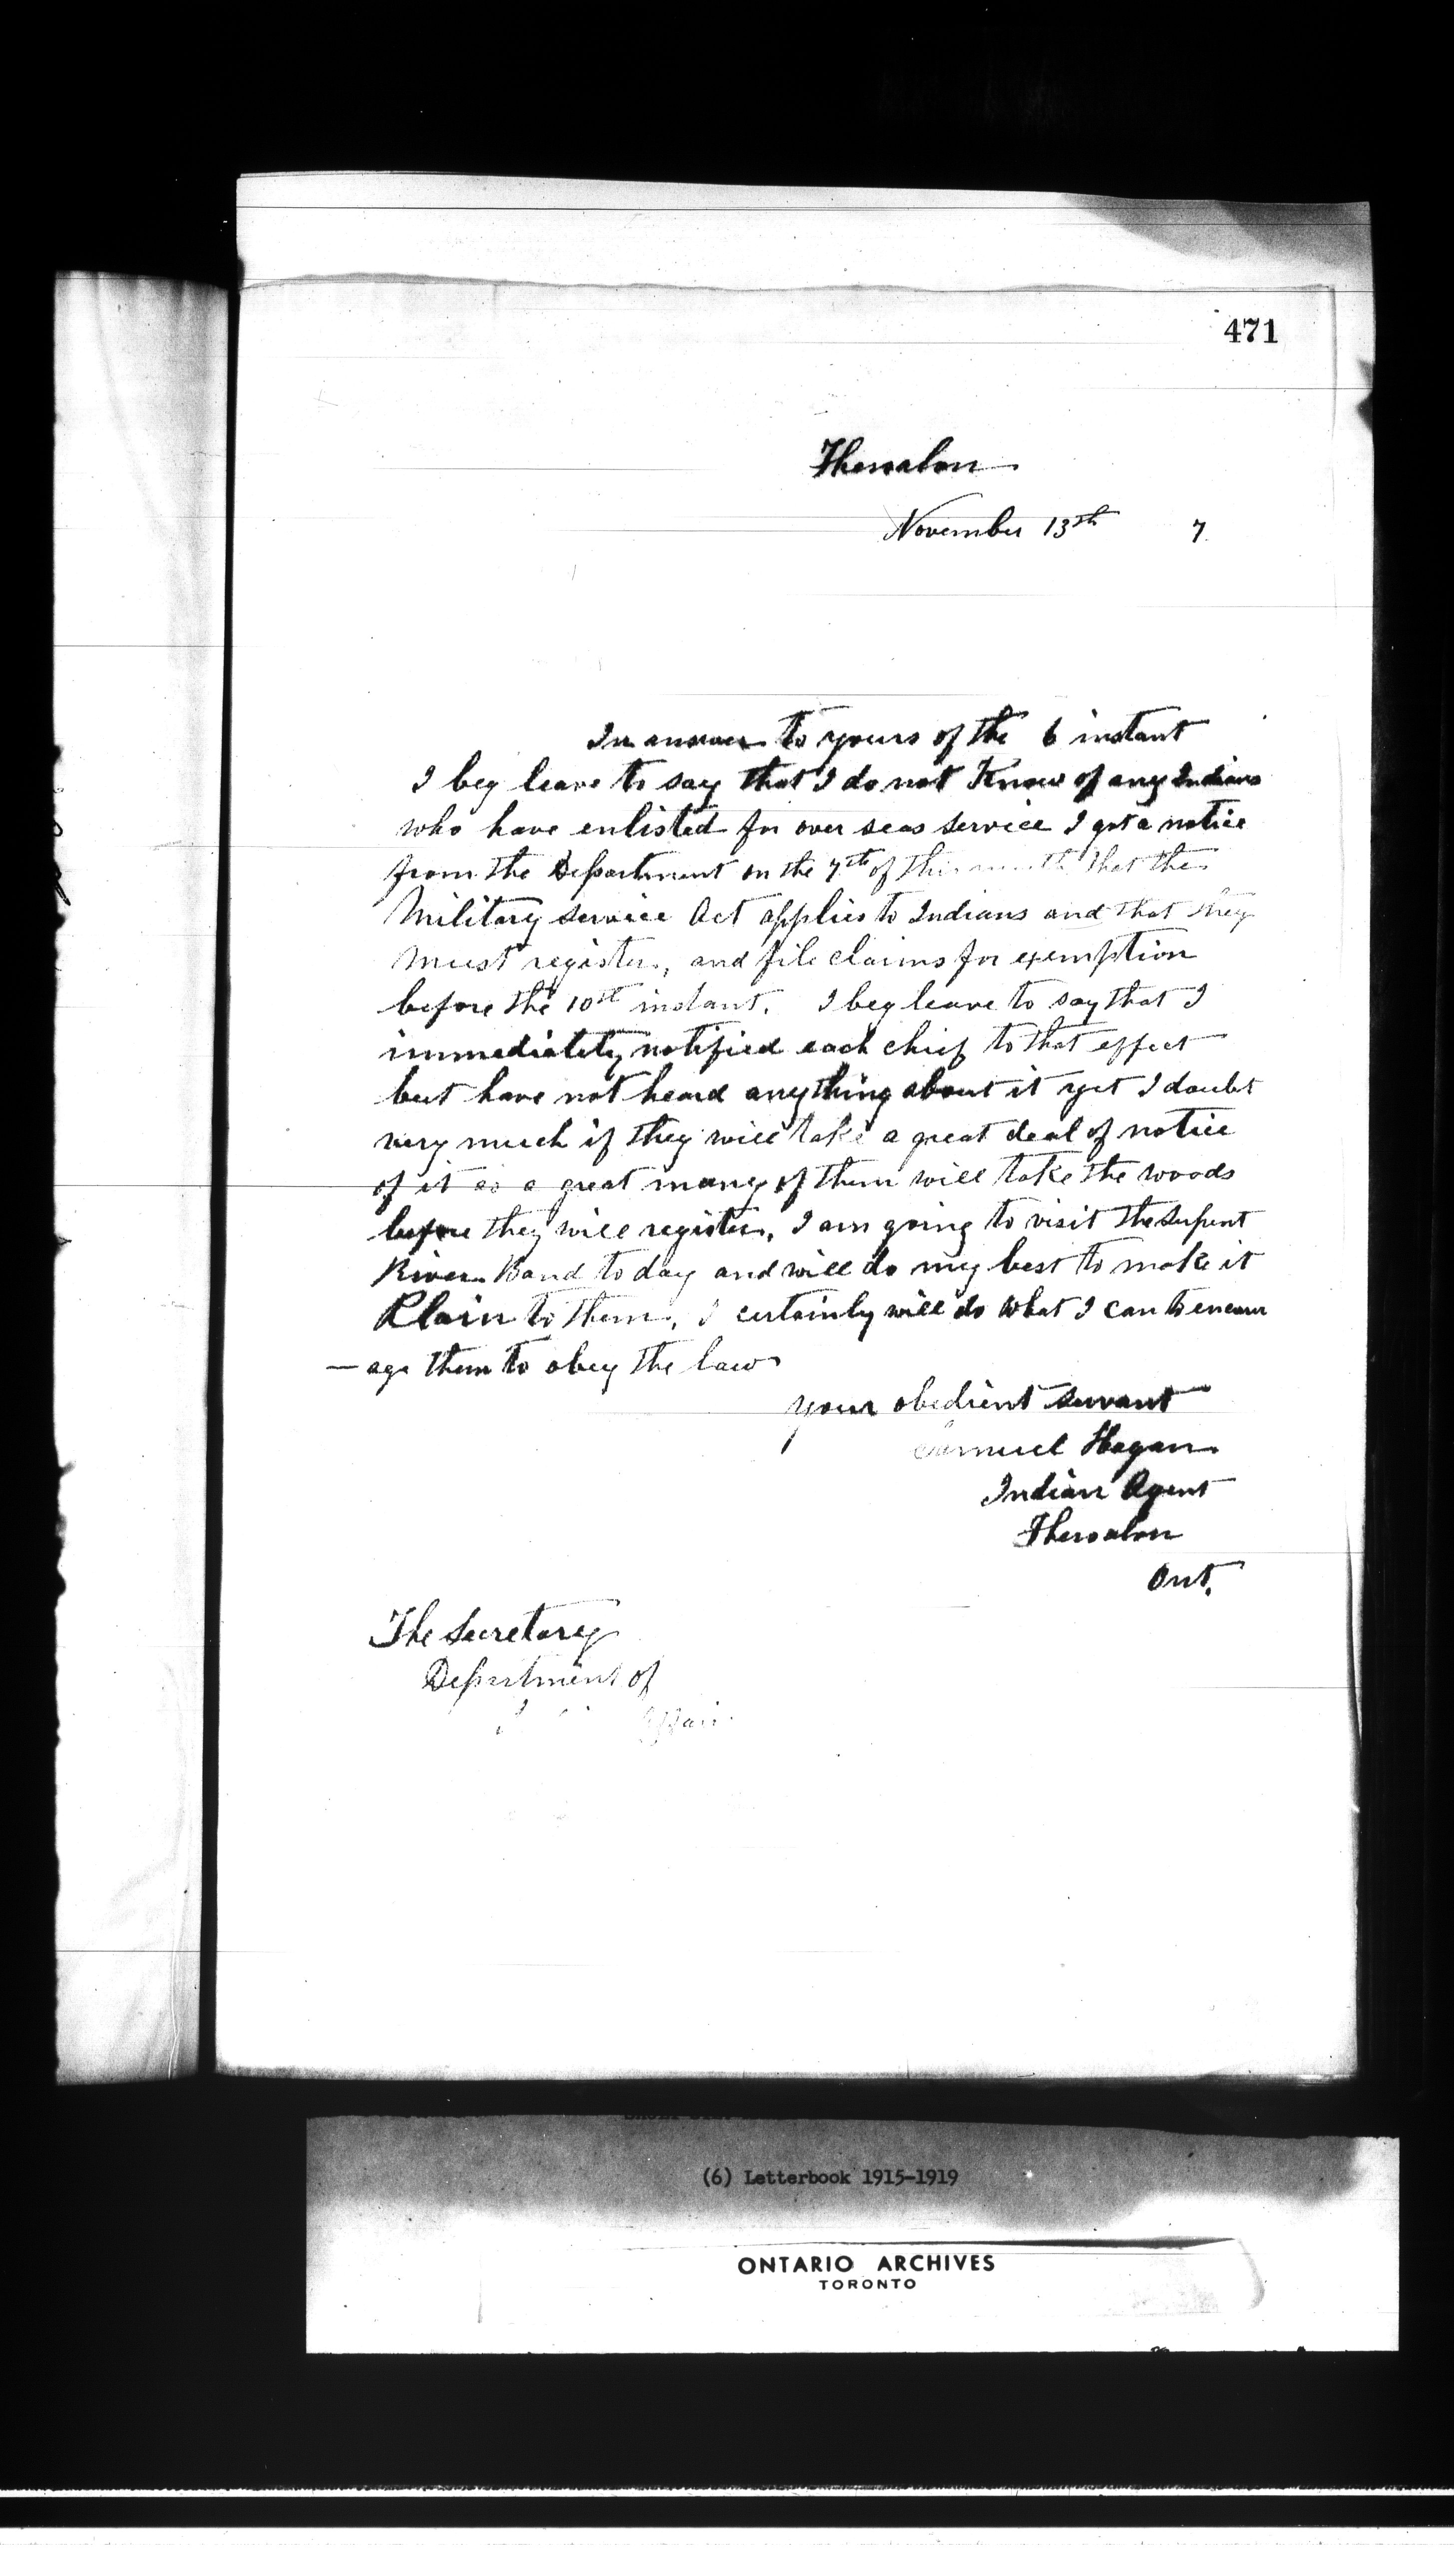 471
Thessalon
November 13th 7.
In answer to yours of the 6 instant
I beg leave to say that I do not Know of any Indians
who have enlisted for over seas service I got a notice
from the Department on the 7th of this month that the
Military Service Act applies to Indians and that they
must register, and file claims for exemption
before the 10st instant. I beg leave to say that I
immediately notified each chief to that effect
but have not heard anything about it yet I doubt
very much if they will take a great deal of notice
of it as a great many of them will take the woods
before they will register, I am going to visit the Serpent
River Band to day and will do my best to make it
Plain to them, I certainly will do what I can to encour
—age them to obey the law
your obedient servant
Samuel Hagan
Indian Agent
Thessalon
Ont.
The Secretary
Department of
Affairs
(6) Letterbook 1915-1919
ONTARIO ARCHIVES
TORONTO